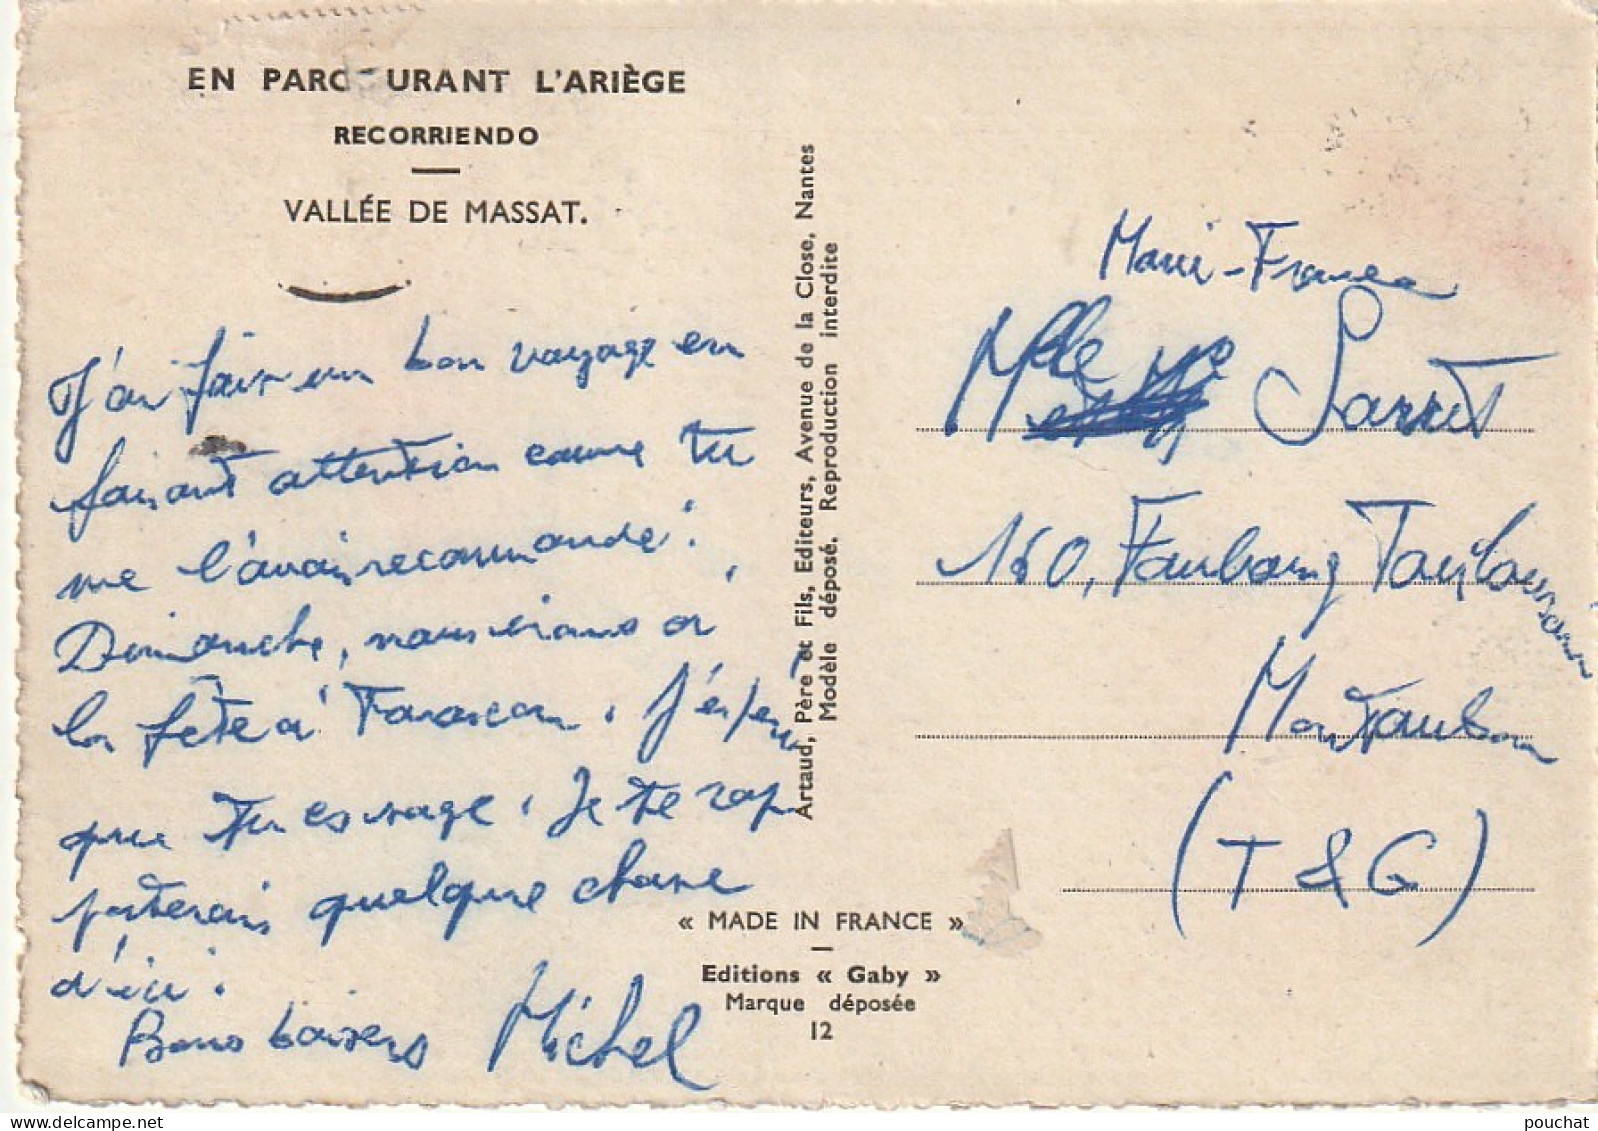 EN PARCOURANT L'ARIÈGE
RECORRIENDO
VALLÉE DE MASSAT.
J'ai fais un bon voyage en
faisant attention comme tu
me l'avais recommandé.
Dimanche, nous irons a
la fête à Tarascon. J'espère
que tu es sage. Je te rap
porterais quelque chose
d'ici.
Bons baisers Michel
Artaud, Père et Fils, Editeurs, Avenue de la Close, Nantes
Modèle déposé. Reproduction interdite
« MADE IN FRANCE »
Editions « Gaby »
Marque déposée
12
Marie-France
Mlle Sarret
160, Faubourg Toulousain
Montauban
(T & G)
pouchat